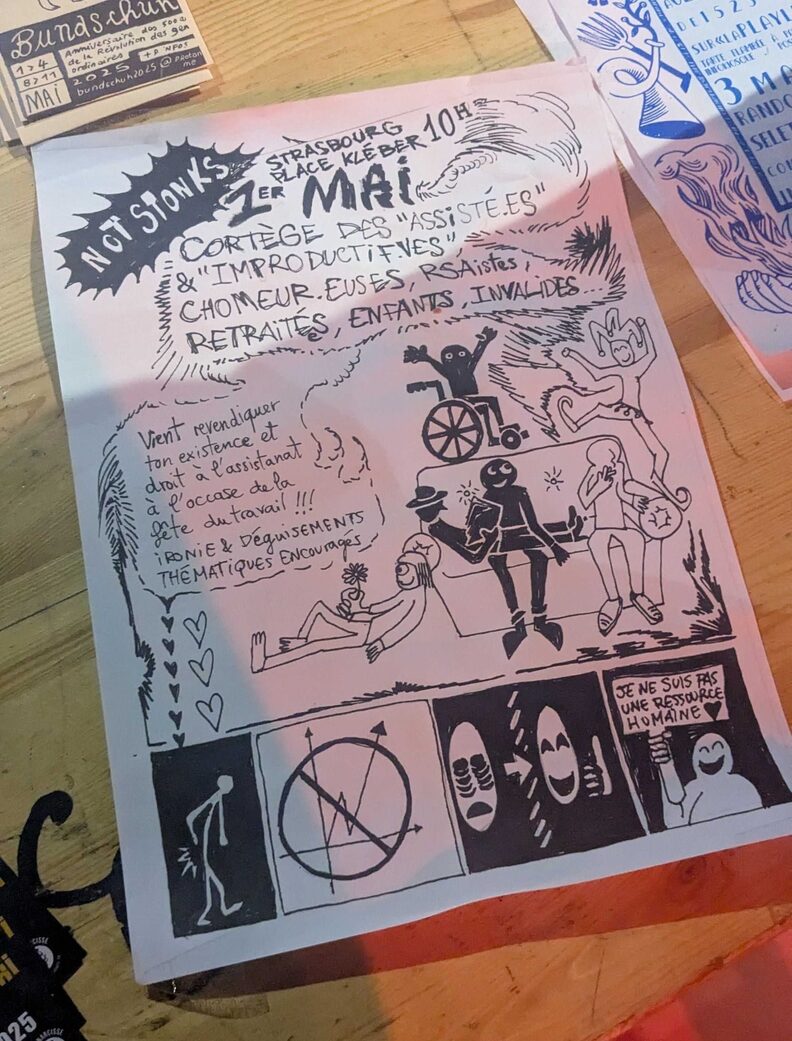 Bundschuh
1 → 4
8 → 11
MAI
Anniversaire des 500a
de la Révolution des gen
ordinaires
2025
+ D'INFOS
bundschuh2025@proton
me
DE 1525
SUR «LA PLAYLI
TARTE FLAMBÉE À P
3 MA
RANDO
SELET
NOT STONKS
STRASBOURG
PLACE KLÉBER 10H
1ER MAI
CORTÈGE DES "ASSISTÉ.ES"
& "IMPRODUCTIF.VES",
CHOMEUR.EUSES, RSAistes,
RETRAITÉeS, ENFANTS, INVALIDES...
Vient revendiquer
ton existence et
droit à l'assistanat
à l'occase de la
fête du travail !!!
IRONIE & DÉGUISEMENTS
THÉMATIQUES ENCOURAGÉS
JE NE SUIS PAS
UNE RESSOURCE
HUMAINE